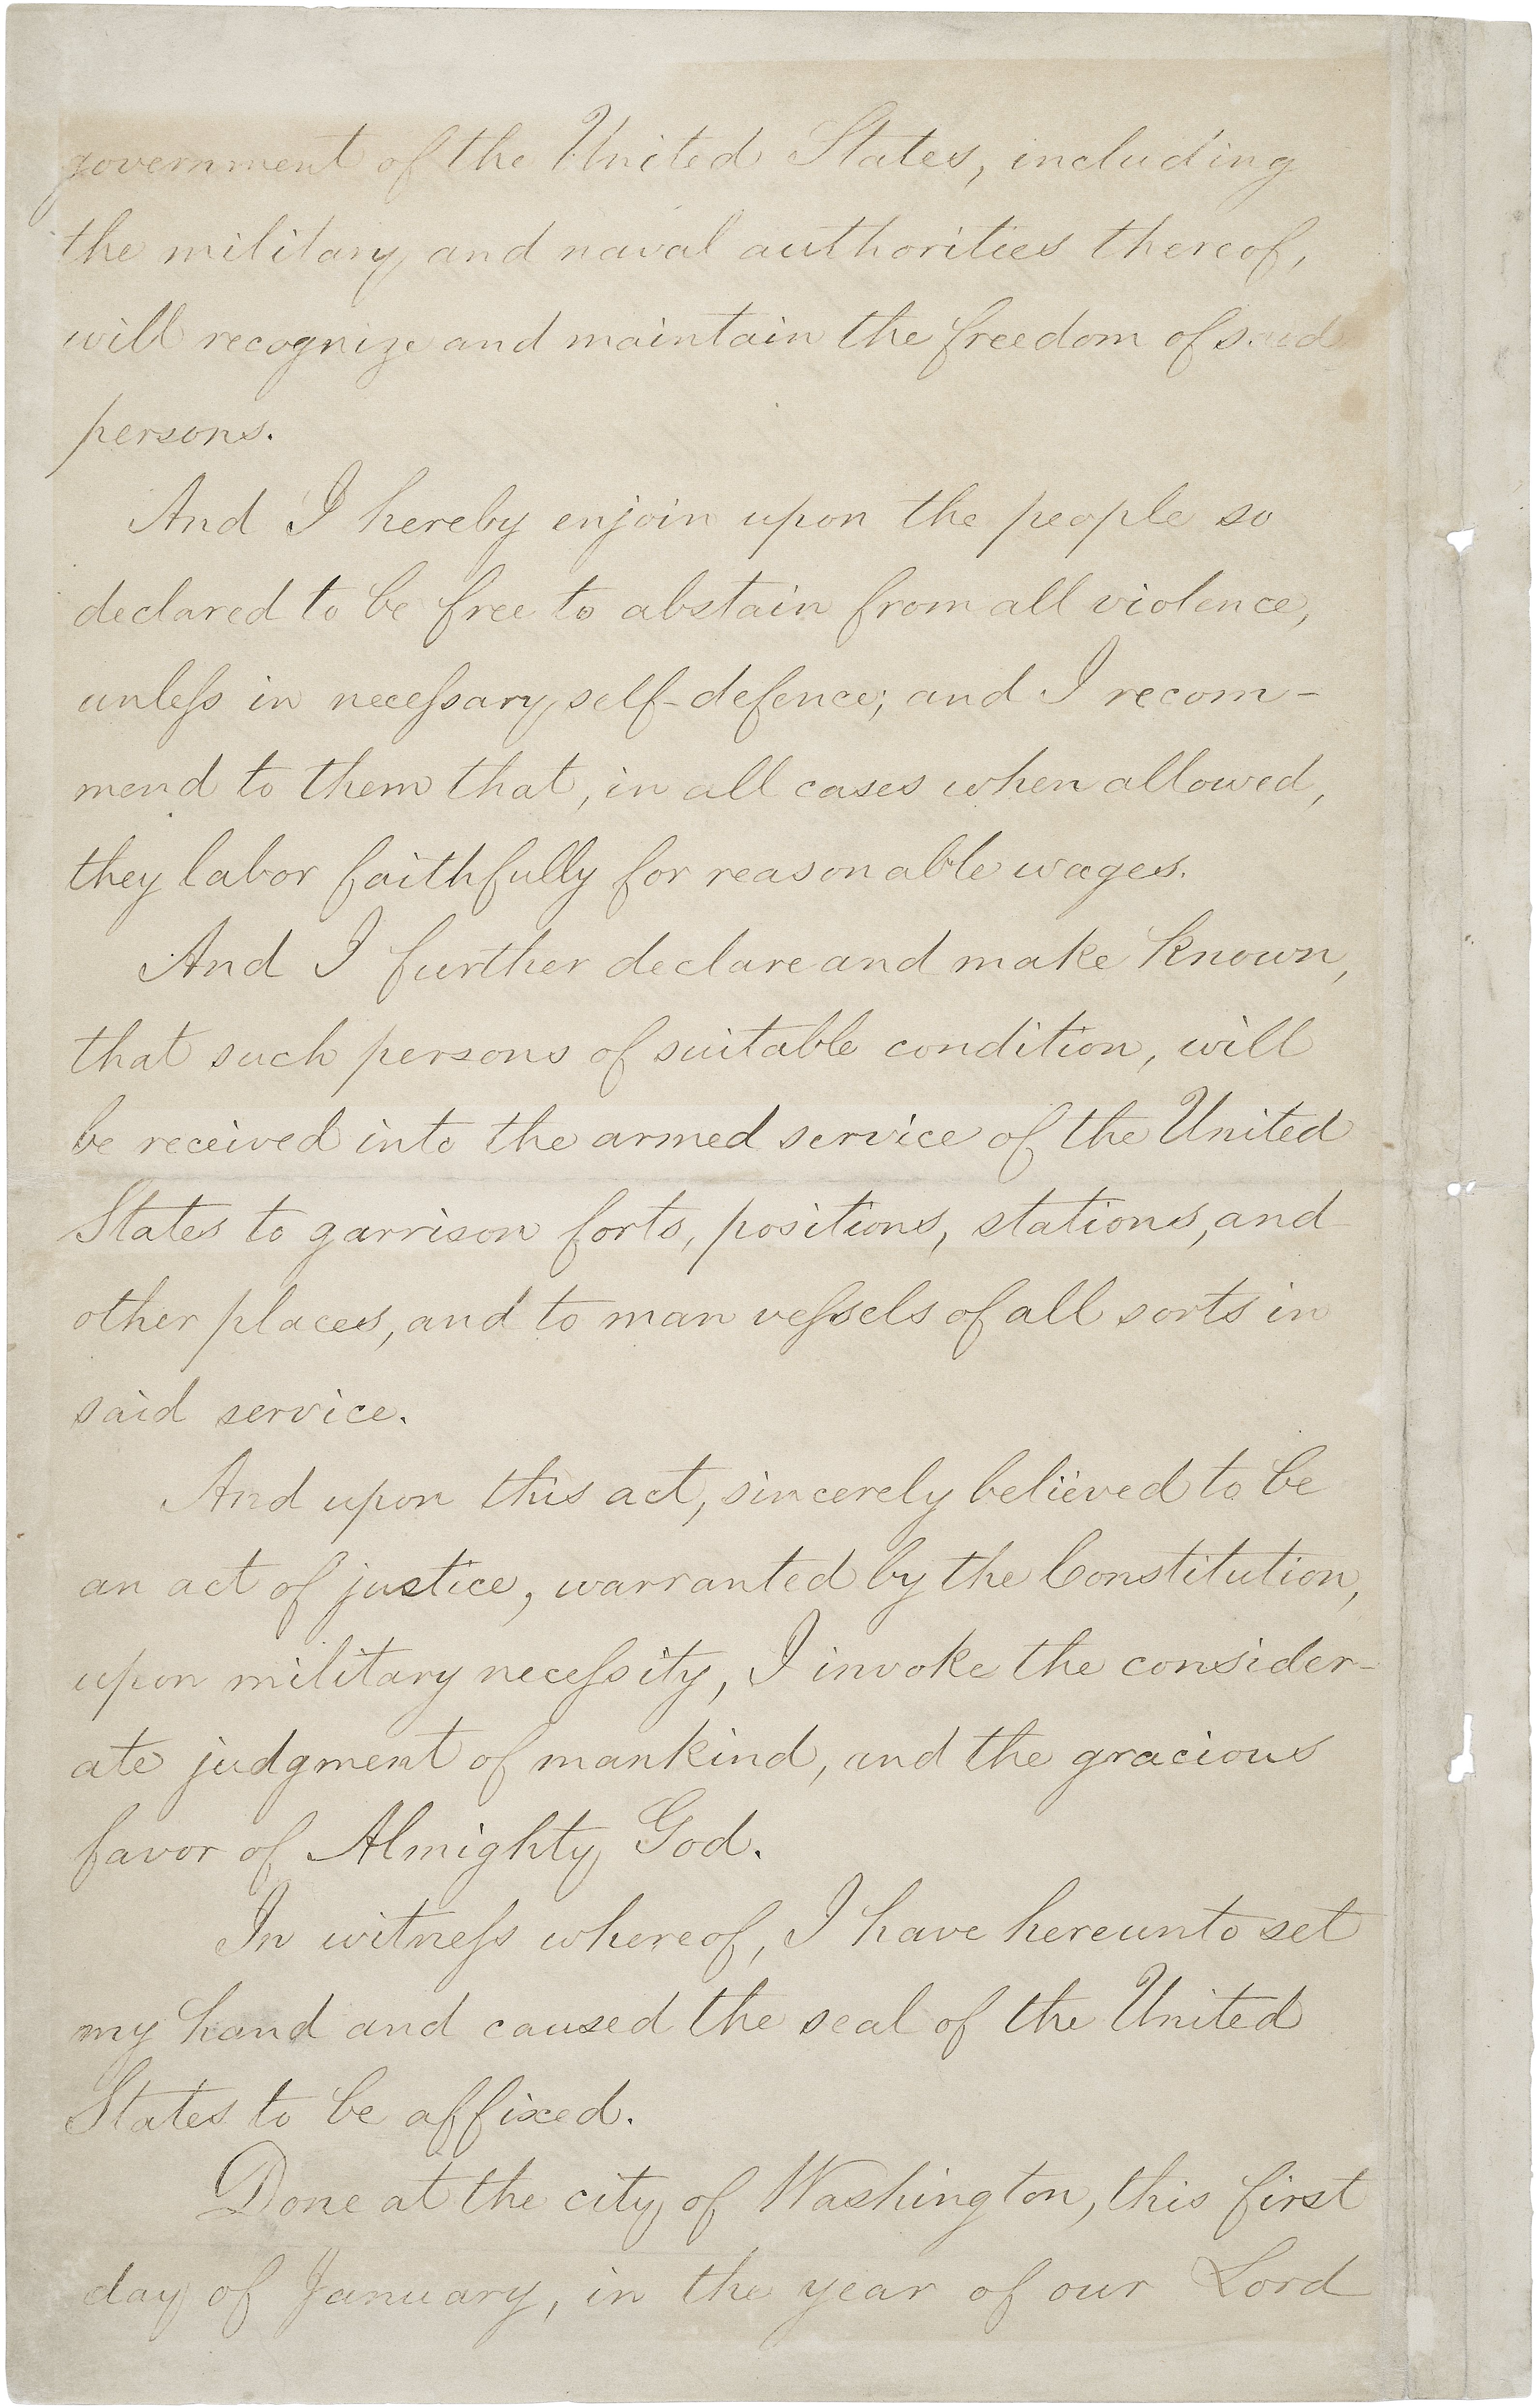 government of the United States, including
the military and naval authorities thereof,
will recognize and maintain the freedom of said
persons.
And I hereby enjoin upon the people so
declared to be free to abstain from all violence,
unless in necessary self-defence; and I recom-
mend to them that, in all cases when allowed,
they labor faithfully for reasonable wages.
And I further declare and make known,
that such persons of suitable condition, will
be received into the armed service of the United
States to garrison forts, positions, stations, and
other places, and to man vessels of all sorts in
said service.
And upon this act, sincerely believed to be
an act of justice, warranted by the Constitution,
upon military necessity, I invoke the consider-
ate judgment of mankind, and the gracious
favor of Almighty God.
In witness whereof, I have hereunto set
my hand and caused the seal of the United
States to be affixed.
Done at the city of Washington, this first
day of January, in the year of our Lord